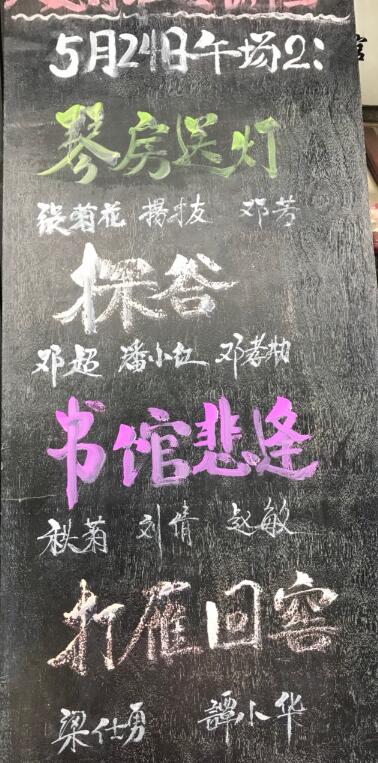 5月24日午场2:
琴房送灯
张菊花 杨才友 邓芳
探谷
邓超 潘小红
书馆悲逢
秋菊 刘倩 赵敏
打雁回窑
梁仕勇 譚小华